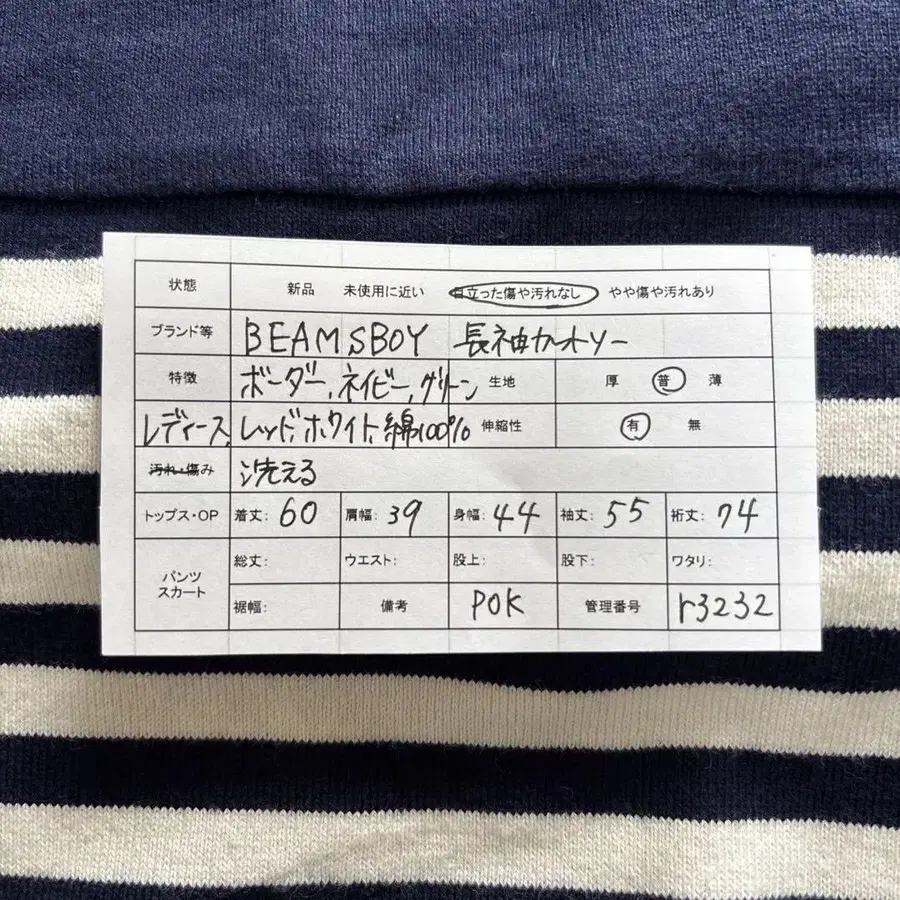 状態 新品 未使用に近い 目立った傷や汚れなし やや傷や汚れあり
ブランド等 BEAMSBOY 長袖カットソー
特徴 ボーダー、ネイビー、グリーン 生地 厚 普 薄
レディース、レッド、ホワイト、綿100% 伸縮性 有 無
汚れ・傷み 洗える
トップス・OP 着丈: 60 肩幅: 39 身幅: 44 袖丈: 55 裄丈: 74
パンツ スカート 総丈: ウエスト: 股上: 股下: ワタリ:
裾幅: 備考 POK 管理番号 r3232